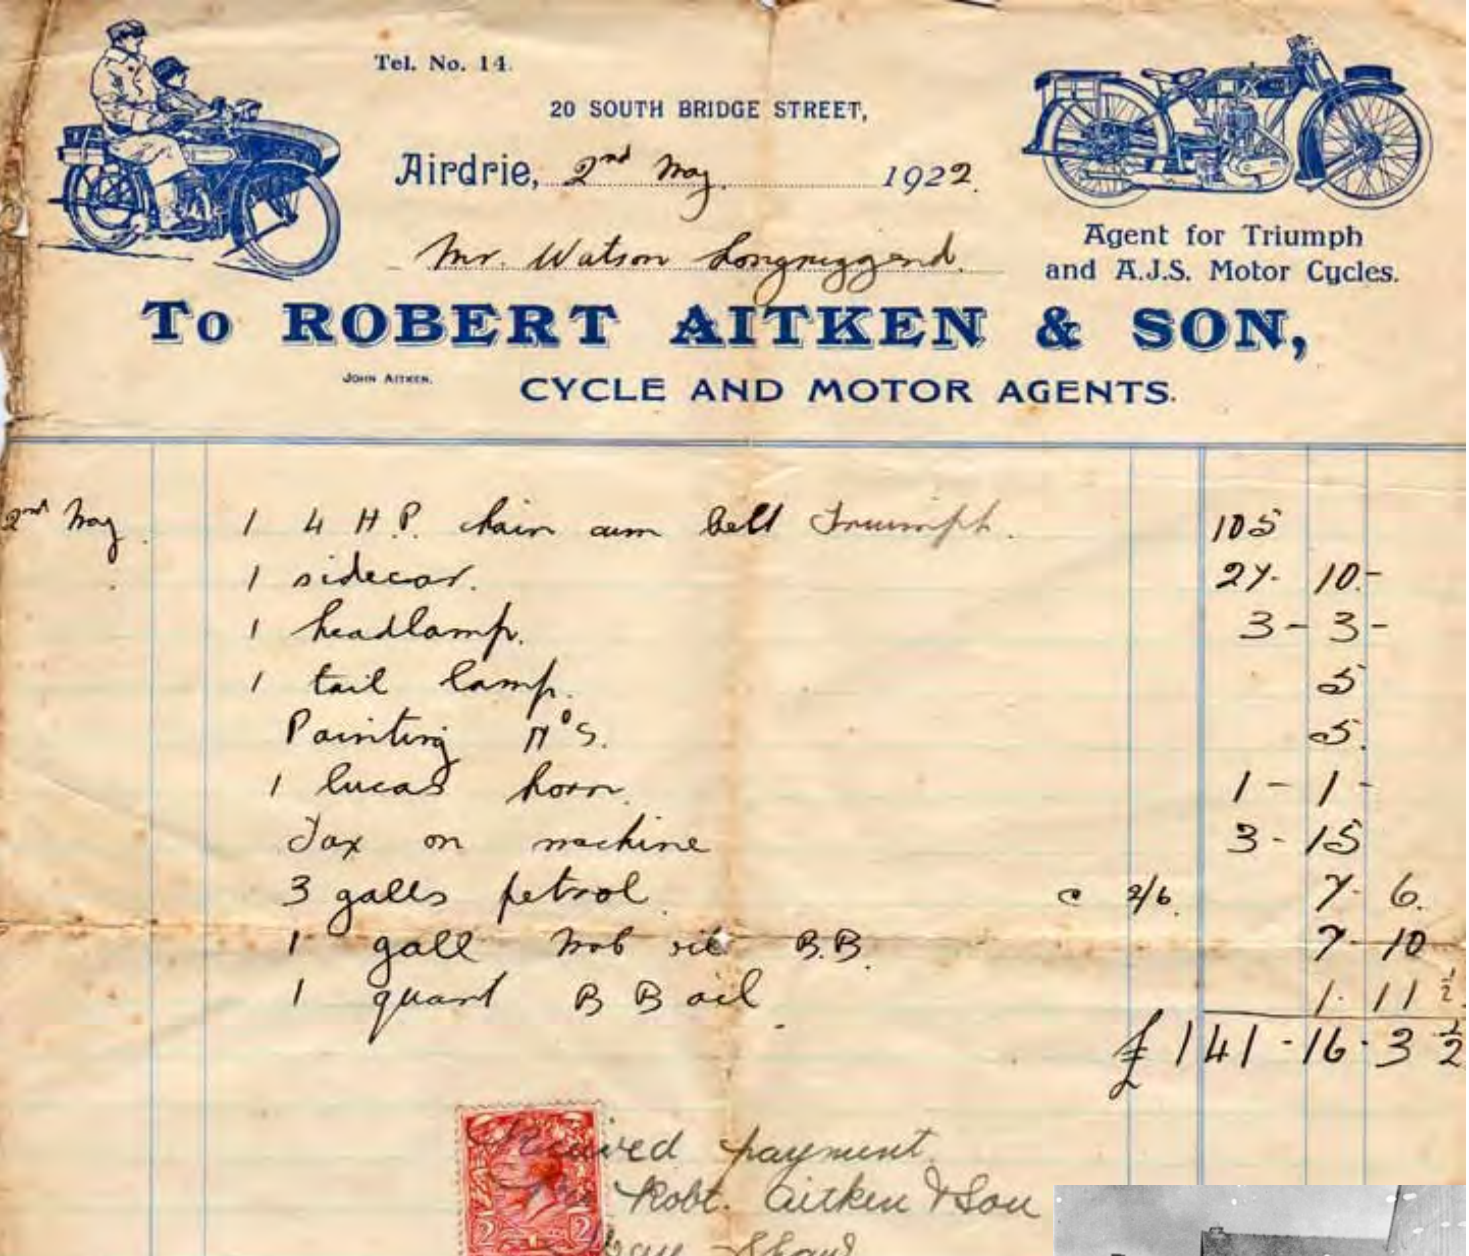 Tel. No. 14.
20 SOUTH BRIDGE STREET,
Airdrie, 2nd May. 1922.
Mr. Watson Longriggend.
Agent for Triumph
and A.J.S. Motor Cycles.
To ROBERT AITKEN & SON,
JOHN AITKEN.
CYCLE AND MOTOR AGENTS.
2nd May 1 4 H.P. chain cum belt Triumph. 105
1 sidecar. 27- 10-
1 headlamp. 3 - 3 -
1 tail lamp. 5
Painting Nos. 5.
1 lucas horn. 1 - 1 -
Tax on machine 3 - 15
3 galls petrol. @ 2/6. 7- 6.
1 gall Mob oil B.B. 7- 10
1 quart B B oil 1. 11 ½
£ 141 - 16 - 3 ½
Received payment
Robt. Aitken & Son
Shaw
2 2